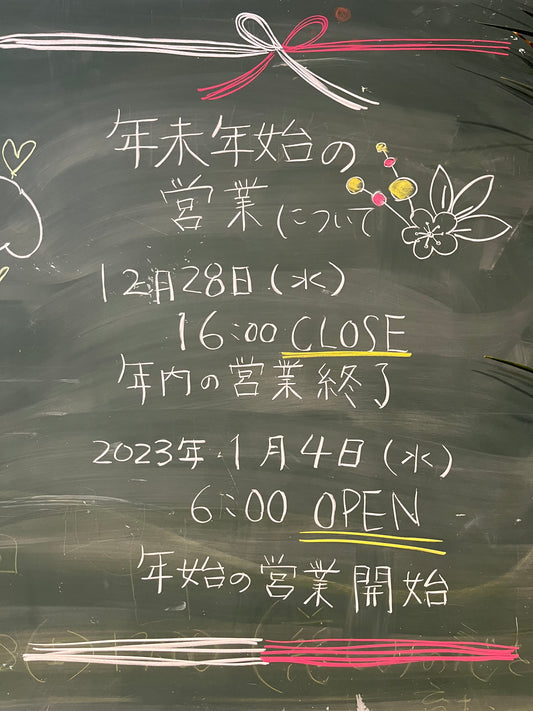 年末年始の
営業について
12月28日(水)
16:00 CLOSE
年内の営業終了
2023年1月4日(水)
6:00 OPEN
年始の営業開始